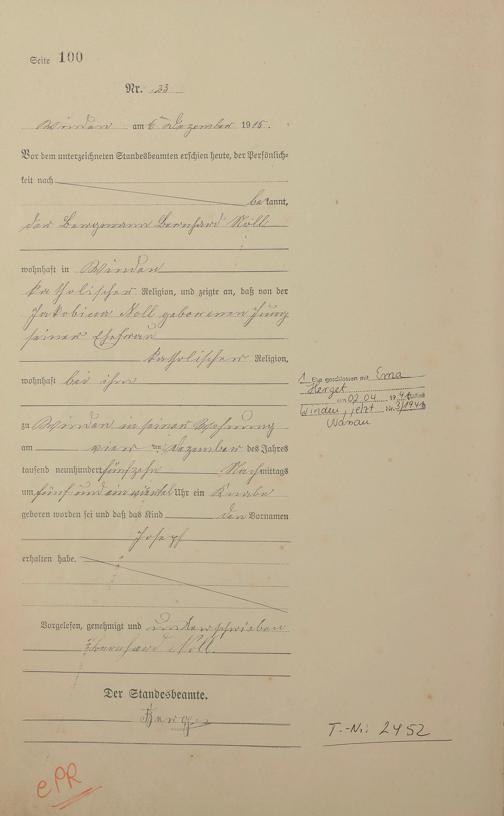 Seite 100
Nr. 23
Winden am 6 Dezember 1915.
Vor dem unterzeichneten Standesbeamten erschien heute, der Persönlich-
keit nach
bekannt,
der Bergmann Bernhard Noll
wohnhaft in Winden
katholischer Religion, und zeigte an, daß von der
Jakobina Noll geborenen Jung
seiner Ehefrau
katholischer Religion,
wohnhaft bei ihm
zu Winden in seiner Wohnung
am vier ten Dezember des Jahres
tausend neunhundert fünfzehn Nachmittags
um fünf und ein viertel Uhr ein Knabe
geboren worden sei und daß das Kind den Vornamen
Joseph
erhalten habe.
Vorgelesen, genehmigt und unterschrieben
Bernhard Noll.
Der Standesbeamte.
1. Ehe geschlossen mit Erna
Herget
am 02.04.
Winden, jetzt Nr. 3/1941
Nanau
T.-Nr: 2452
ePR